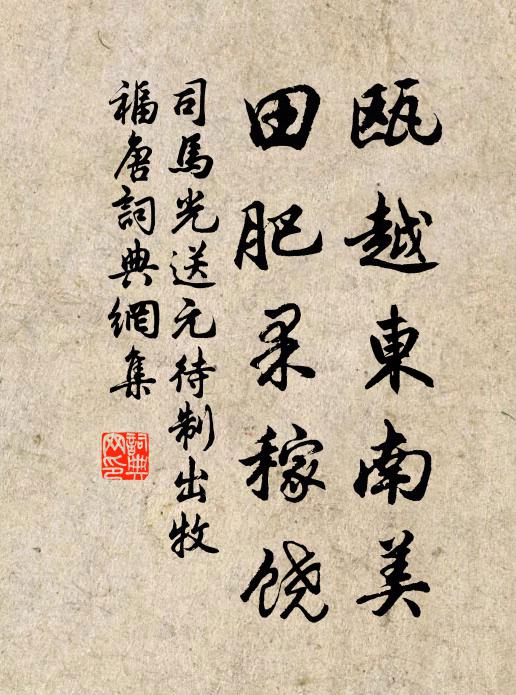 瓯越東南美
田肥禾稼饶
司馬光送元待制出牧
福唐詞典網集
詞典网印